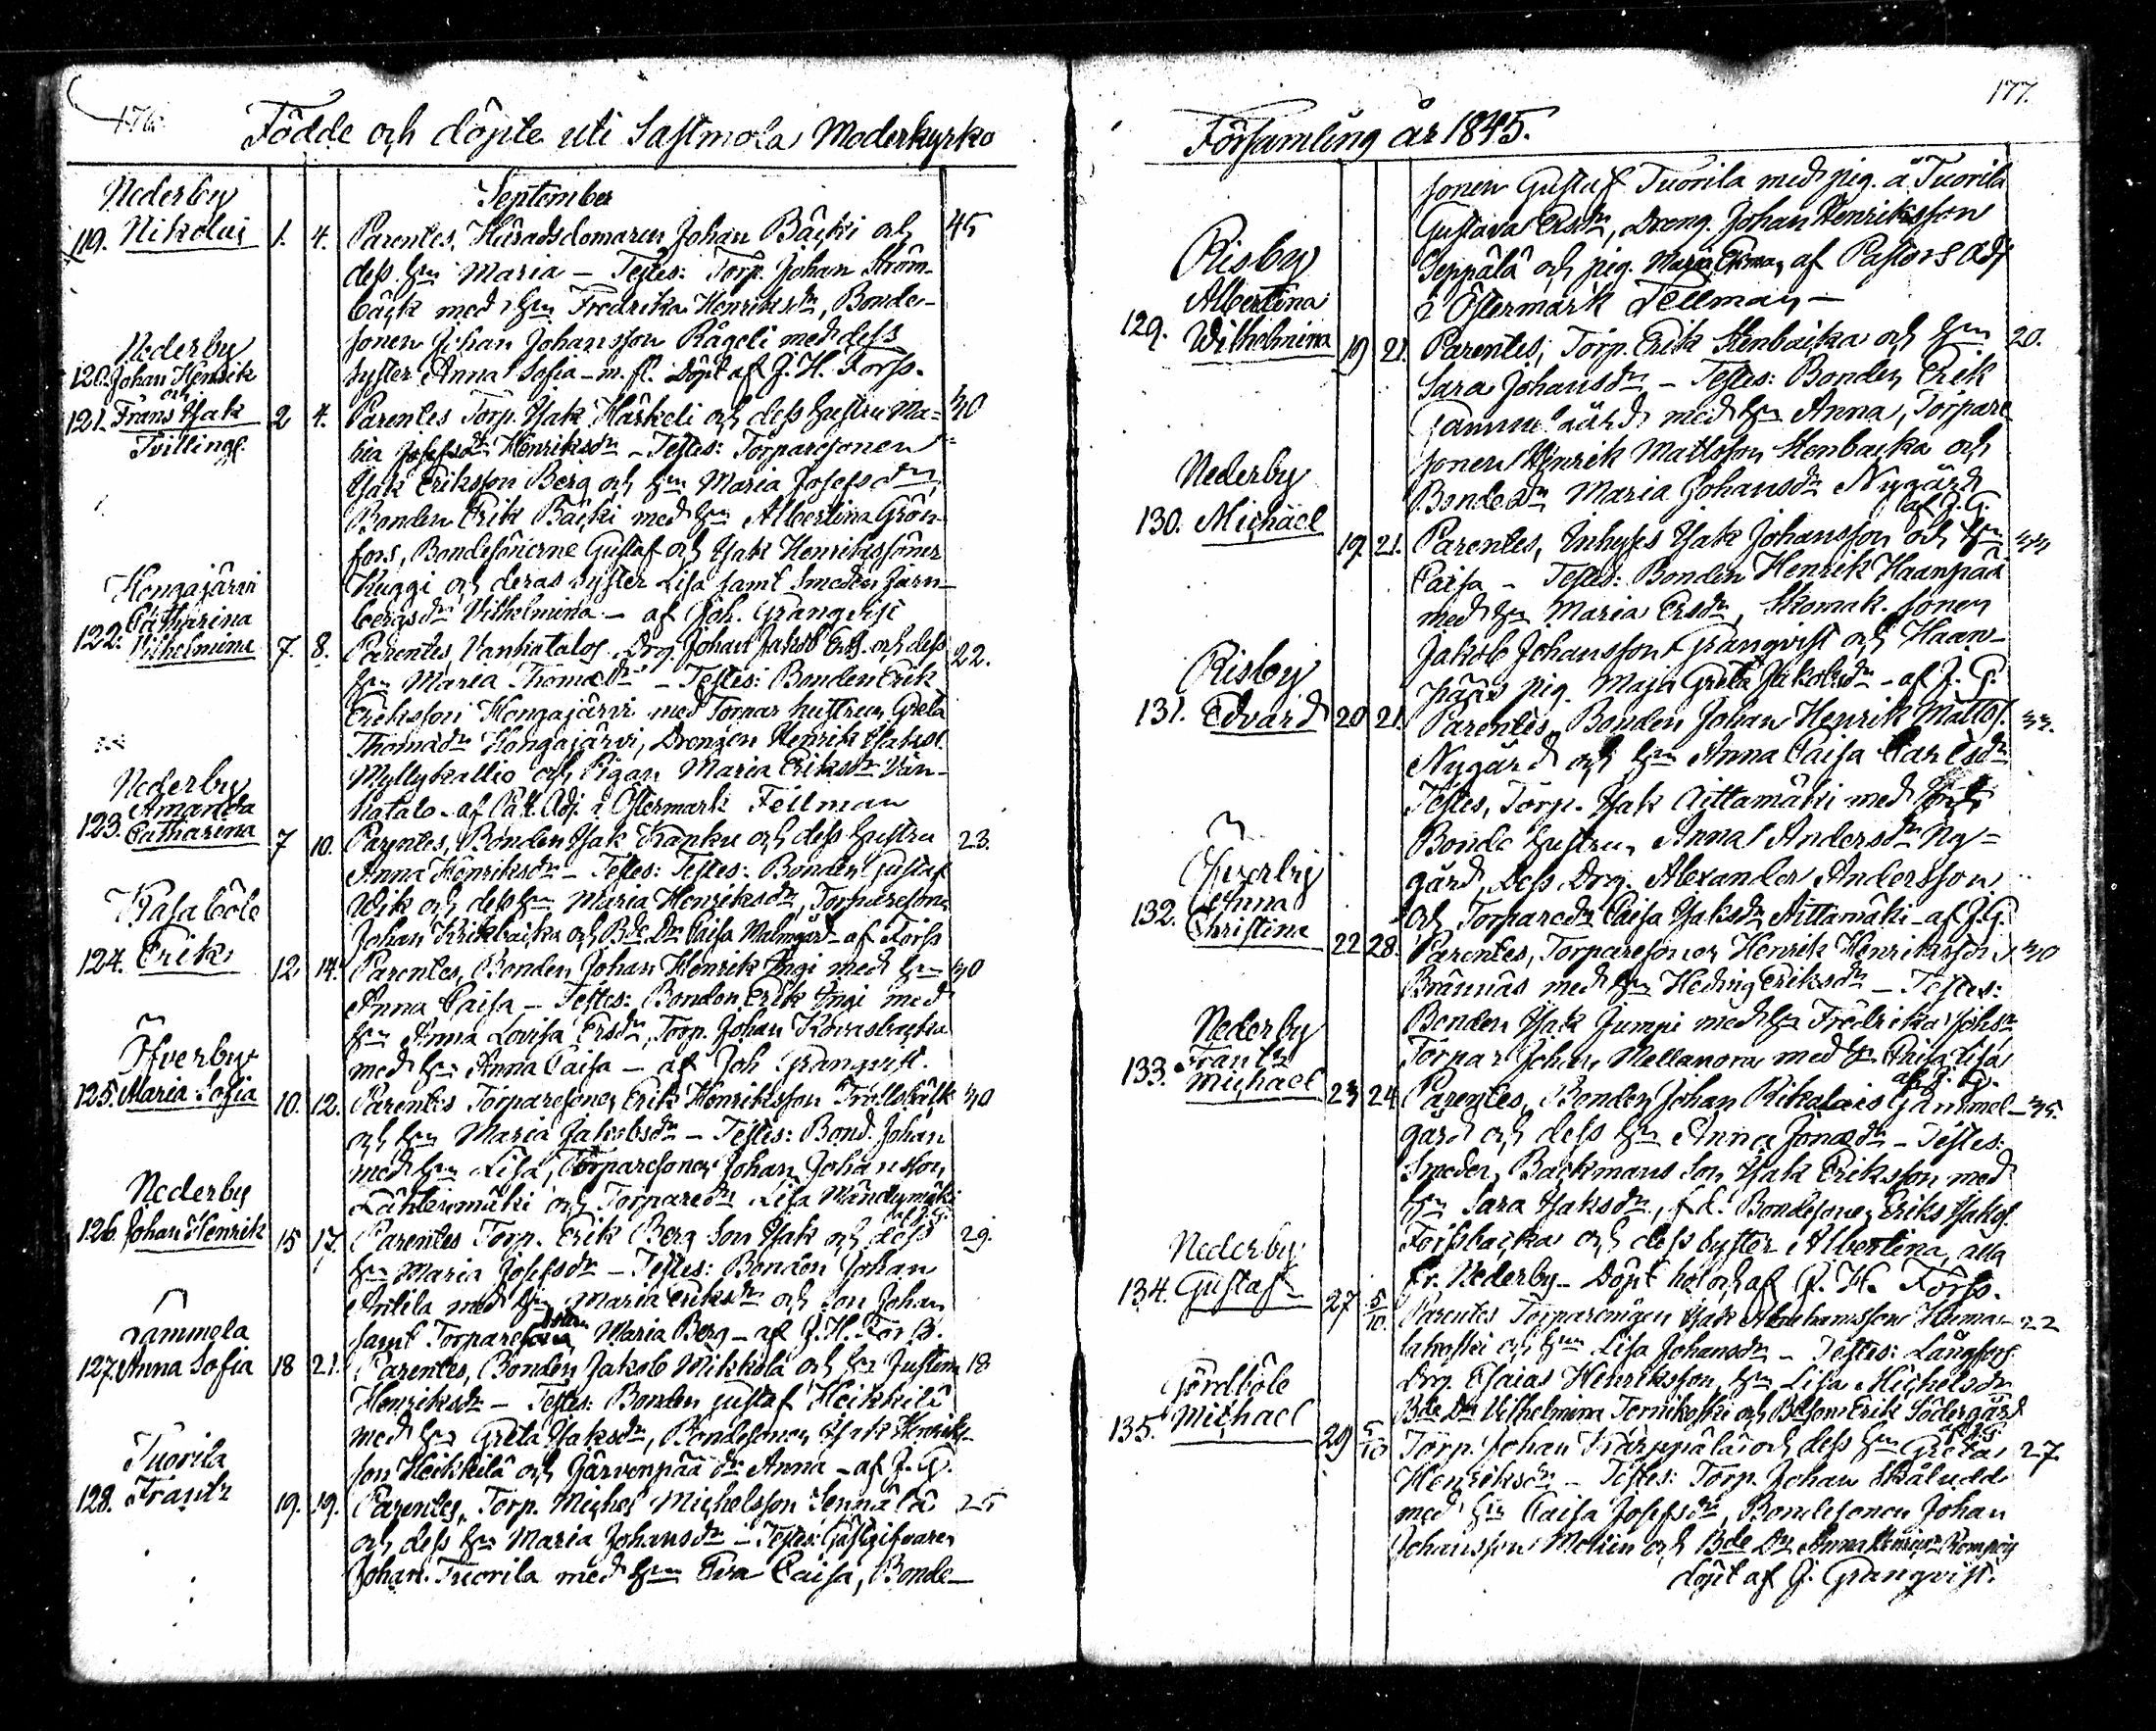 176.
Födde och döpte uti Sastmola Moderkyrko
Nederby
September
119. Nikolai 1. 4. Parentes, Häradsdomaren Johan Bäcki och 45
dess hu Maria – Testes: Torp. Johan Ström-
bäck med hu Fredrika Henriksdr, Bonde-
sonen Johan Johansson Rågeli med dess
syster Anna Sofia – m. fl. Döpt af J. H. Forss.
Nederby
120. Johan Henrik
och
121. Frans Isak 2 4. Parentes Torp. Isak Härkeli och dess hustru Ma- 40
Tvilling.
ria Josefsdr Henriksdr – Testes: Torparesonen
Isak Eriksson Berg och hu Maria Josefsdr,
Bonden Erik Bäcki med hu Albertina Grön-
fors, Bondesönerne Gustaf och Isak Henrikssöner
Kuggi och deras syster Lisa samt Smeden Järn-
bergsdr Vilhelmina – af Joh. Granqvist
Hongajärvi
Catharina
122. Vilhelmina 7. 8. Parentes, Vankatalos Drg. Johan Jakob Erss. och dess 22.
hu Maria Thomædr – Testes: Bonden Erik
Eriksson Hongajärvi med Torpar hustrun Greta
Thomædr Hongajärvi, Drengen Henrik Isakss.
Myllykallio och Pigan Maria Eriksdr Van-
katalo – af Past. Adj. i Östermark Fellman
Nederby
Amanda
123. Catharina 7 10. Parentes, Bonden Isak Franku och dess hustru 23.
Anna Henriksdr – Testes: Testes: Bonden Gustaf
Wik och dess hu Maria Henriksdr, Torparesonen
Johan Krikbacka och Bde Dr Caisa Malmgård – af Forss
Kasaböle
124. Erik 12 14. Parentes, Bonden Johan Henrik Yngi med hu 40
Anna Caisa – Testes: Bonden Erik Yngi med
hu Anna Lovisa Ersdr, Torp. Johan Kovasbacka
med hu Anna Caisa – af Joh Granquist.
Öfverby
125. Maria Sofia 10. 12. Parentes Torparesonen Erik Henriksson Trollskålk 40
och hu Maria Jakobsdr – Testes: Bond. Johan
med hu Lisa, Torparesonen Johan Johansson
Lähtenmäki och Torparedr Lisa Mändymäki
Nederby
126. Johan Henrik 15 17. Parentes Torp. Erik Berg Son Isak och dess 29.
hu Maria Josefsdr – Testes: Bonden Johan
Antila med hu Maria Eriksdr och Son Johan
samt Torpare Maria Berg – af J. H. Forss.
Lammela
127. Anna Sofia 18 21. Parentes, Bonden Jakob Mikkola och hu Justina 18
Henriksdr – Testes: Bonden Gustaf Heikkilä
med hu Greta Isaksdr, Bondesonen Isak Henriks-
son Heikkilä och Järvenpää dr Anna – af J. G.
Tuorila
128. Frantz 19. 19. Parentes, Torp. Michel Michelsson Sennälä 25
och dess hu Maria Johansdr – Testes: Gästgifvaren
Johan Tuorila med hu Eva Caisa, Bonde-
177.
Församling år 1845.
sonen Gustaf Tuorila med pig. å Tuorila
Gustava Ersdr, Dreng. Johan Henriksson
Seppälä och pig. Maria Ekman af Pastors Adj
i Östermark Fellman –
Risby
Albertina
129. Wilhelmina 19 21. Parentes, Torp. Erik Stenbacka och hu 20.
Sara Johansdr – Testes: Bonden Erik
Gammelgård med hu Anna, Torpare
sonen Henrik Mattsson Stenbacka och
Bondedr Maria Johansdr Nygård
af J. G.
Nederby
130. Michäel 19. 21. Parentes, Inhyses Isak Johansson och hu 44
Caisa – Testes: Bonden Henrik Haanpää
med hu Maria Ersdr, Skomak. sonen
Jakob Johansson Granqvist och Haan-
pääs pig. Maja Greta Jakobsdr – af J. G.
Risby
131. Edvard 20 21. Parentes, Bonden Johan Henrik Mattss. 33.
Nygård och hu Anna Caisa Carlsdr
Testes, Torp. Isak Aittamäki med
Bonde hustrun Anna Andersdr Ny-
gård, Dess Drg. Alexander Andersson
och Torparedr Caisa Isaksdr Aittamäki – af J. G.
Öfverby
Anna
132. Christina 22 28. Parentes, Torparesonen Henrik Henriksson 40
Brännäs med hu Hedvig Eriksdr – Testes:
Bonden Isak Jumpi med hu Fredrika Johsdr
Torpar Johan Mellanova med hu Caisa Lisa
af J. G.
Nederby
Frantz
133. Michael 23 24 Parentes, Bonden Johan Rikalais Gammel- 35.
gård och dess hu Anna Jonædr – Testes:
Smeden Backmans Son Isak Eriksson med
hu Sara Isaksdr, f.d. Bondesonen Eriks Isakss.
Forssbacka och dess syster Albertina, alla
fr. Nederby – Döpt hol och af J. H. Forss.
Nederby
134. Gustaf 27 5/10. Parentes Torparemågen Isak Abrahamsson 22
och hu Lisa Johansdr – Testes: Långfors
Drg. Esaias Henriksson, hu Lisa Michelsdr
Bde Dr Vilhelmina Tornikoski och Bdeson Erik Södergård
af J. G.
Tjördböle
135. Michael 29 5/10 Torp. Johan Karppälä och dess hu Greta 27
Henriksdr – Testes: Torp. Johan Skåludde
med hu Caisa Josefsdr, Bondesonen Johan
Johansson Molien och Bde Dr Anna
döpt af J. Granqvist.